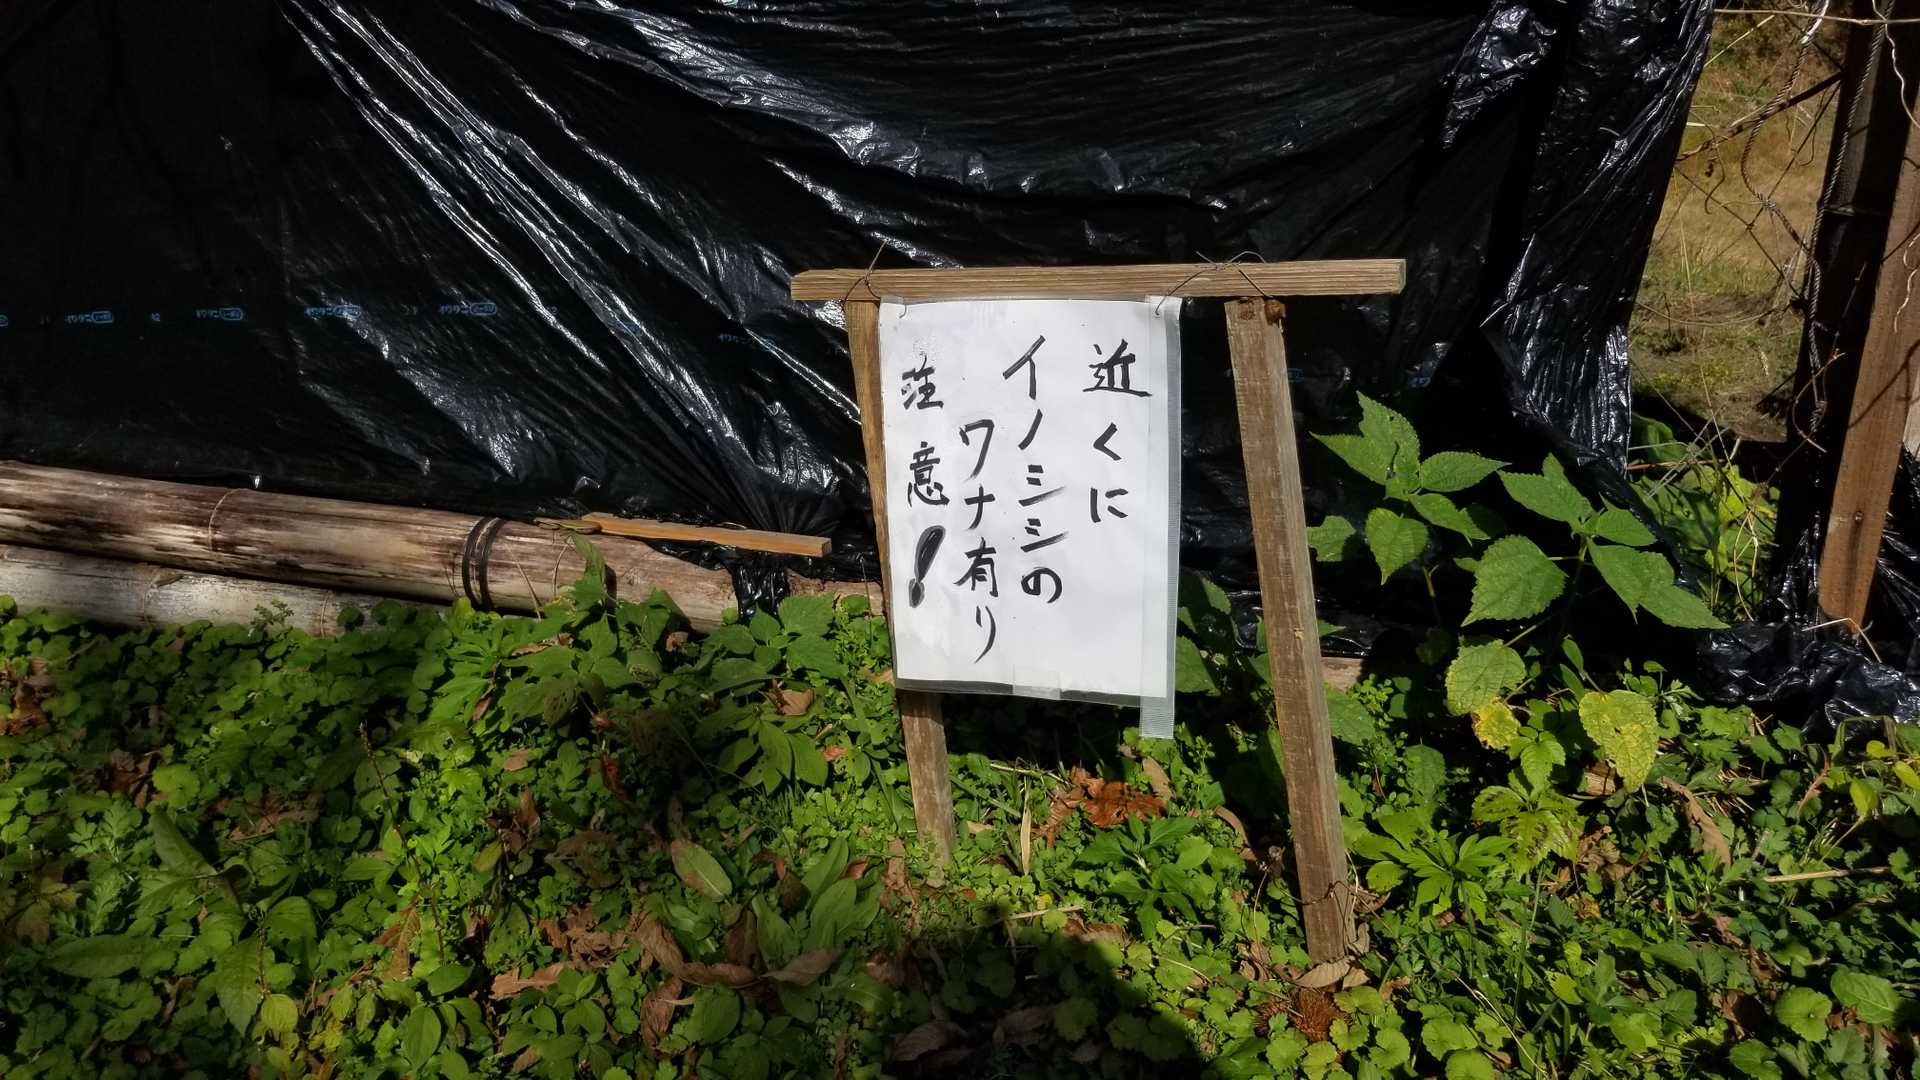 近くに
イノシシの
ワナ有り
注意!